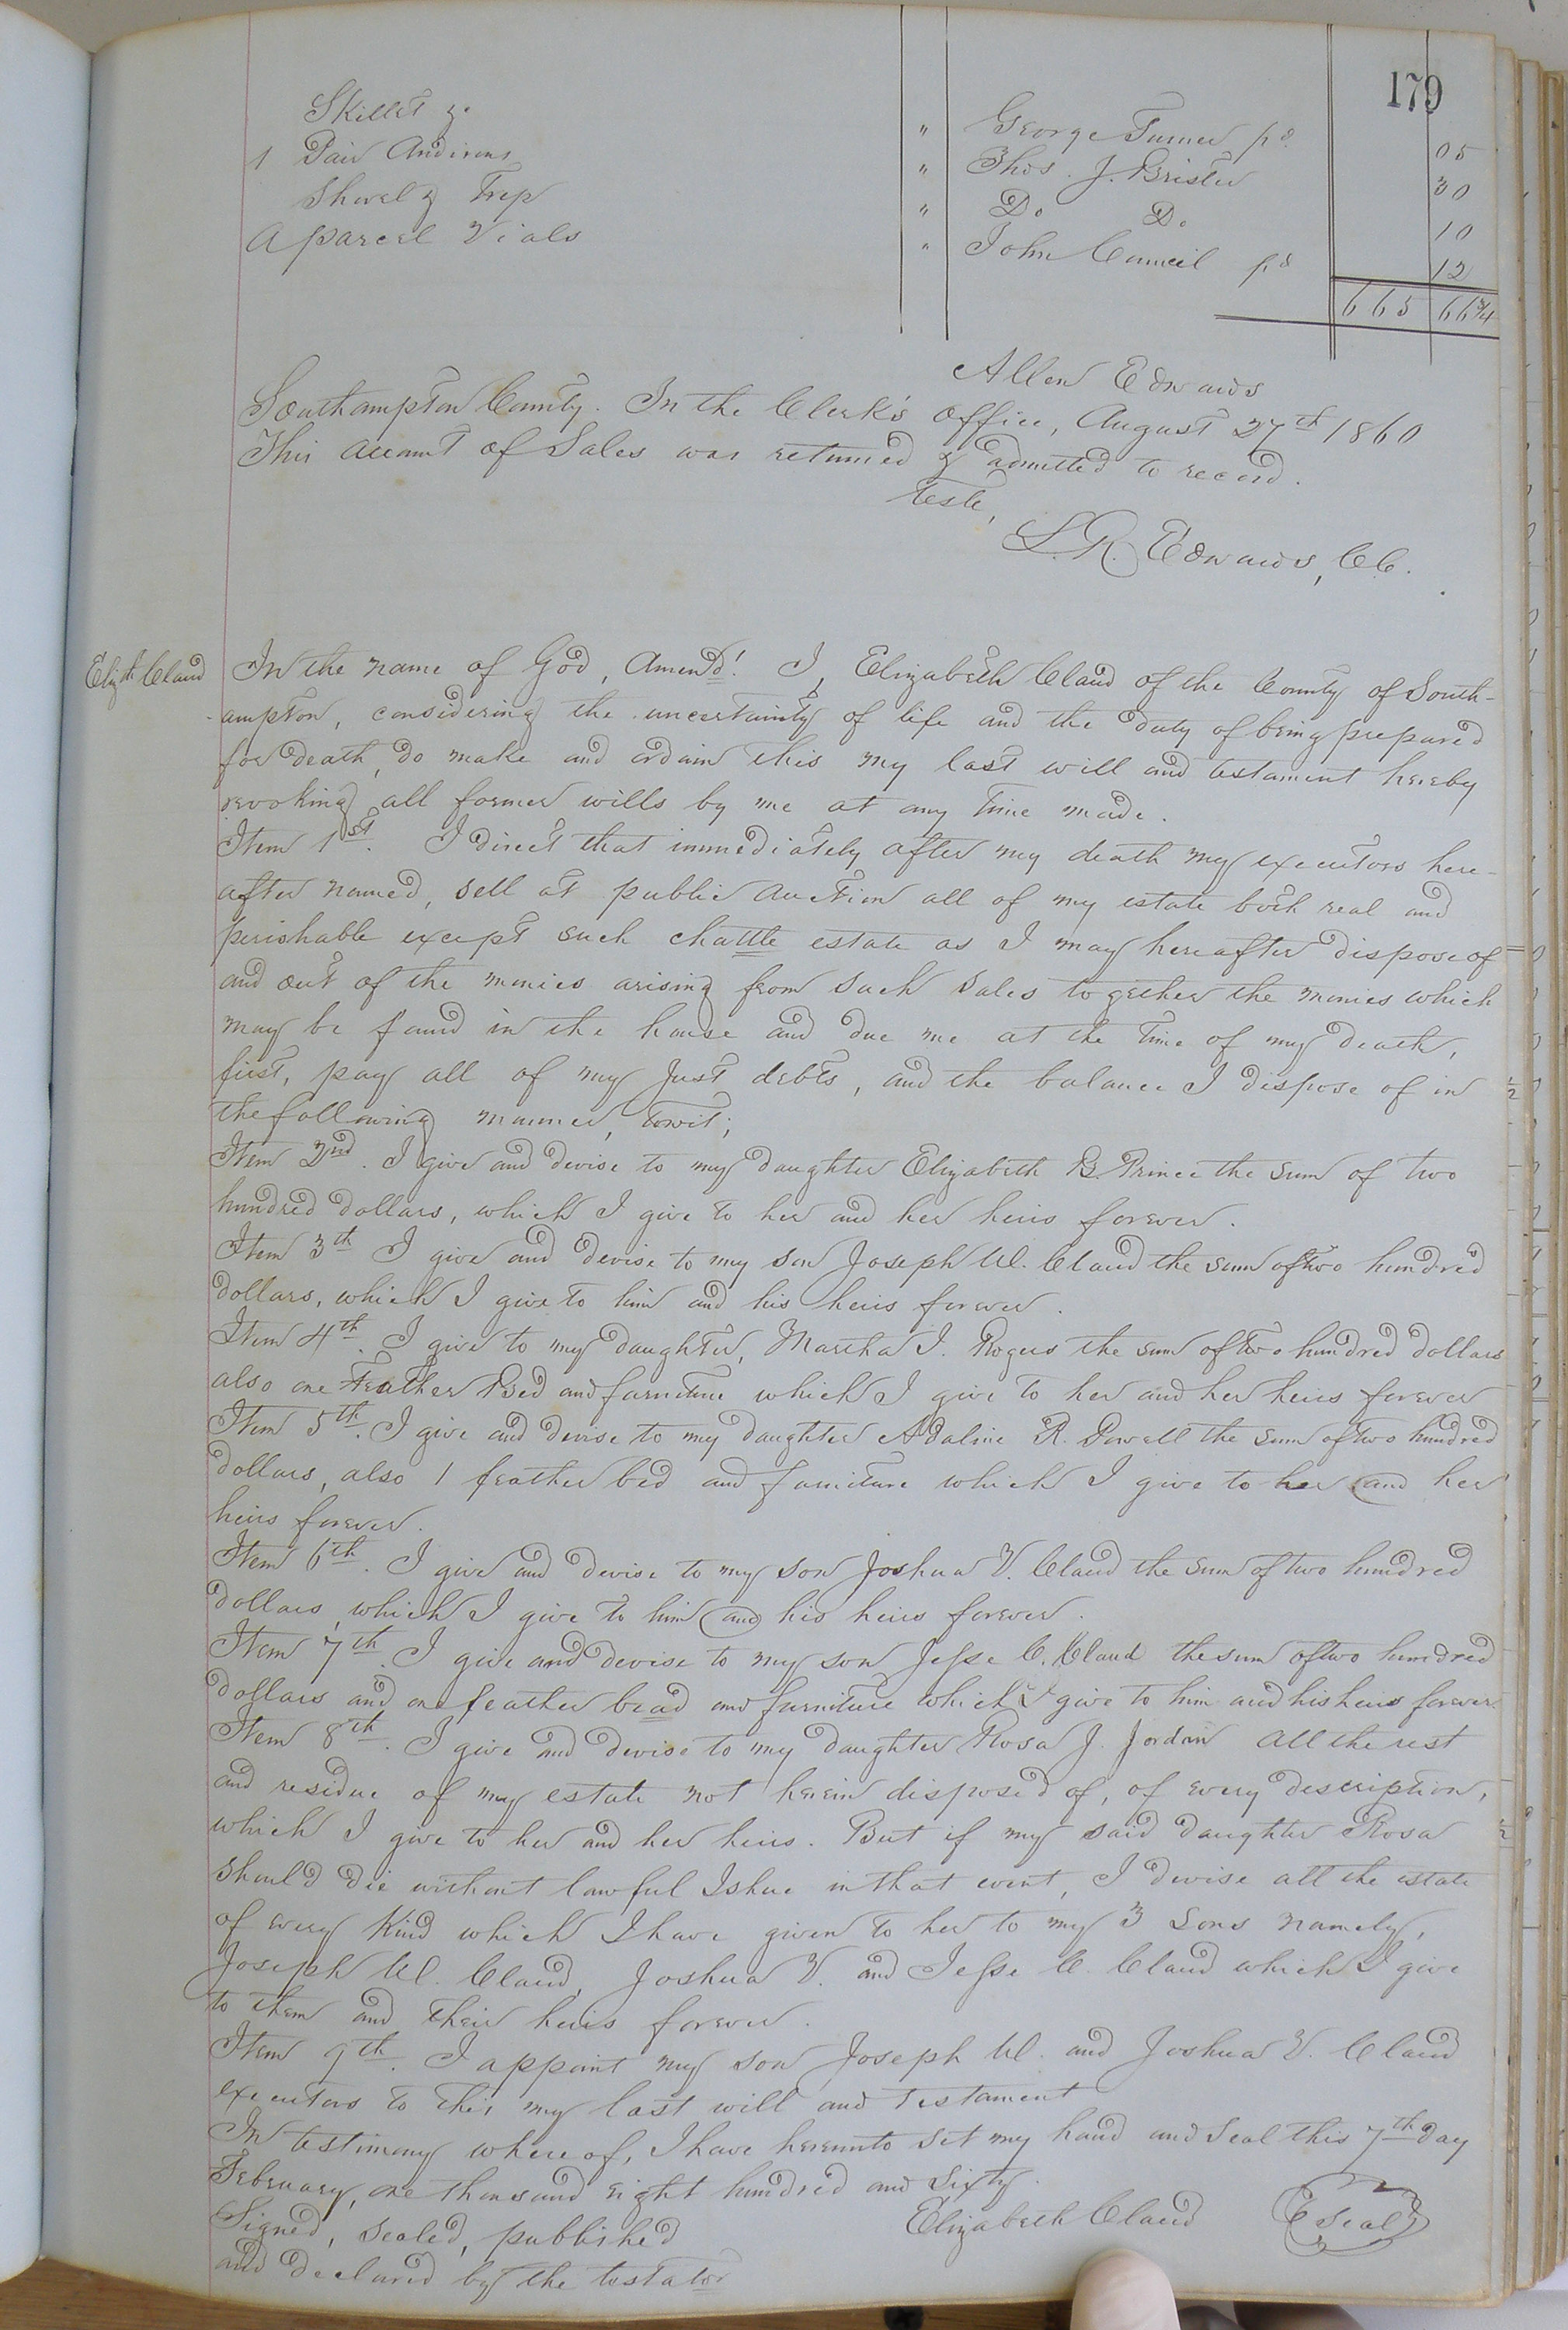 179
Skillet &c " George Turner pd. 05
1 Pair Andirons " Thos. J. Brister 30
Shovel & Trap " Do Do 10
A parcel Vials " John Council pd 12
665 66 3/4
Allen Edwards
Southampton County. In the Clerk's office, August 27th 1860
This account of Sales was returned & admitted to record.
Teste,
L. R. Edwards, CC.
Elizth Claud
In the name of God, Amend! I, Elizabeth Claud of the County of South-
ampton, considering the uncertainty of life and the duty of being prepared
for death, do make and ordain this my last will and testament hereby
revoking all former wills by me at any time made.
Item 1st. I direct that immediately after my death my executors here-
after named, sell at public auction all of my estate both real and
perishable except such chattle estate as I may hereafter dispose of
and out of the monies arising from such sales together the monies which
may be found in the house and due me at the time of my death,
first, pay all of my just debts, and the balance I dispose of in
the following manner, towit;
Item 2nd. I give and devise to my daughter Elizabeth B. Prince the sum of two
hundred dollars, which I give to her and her heirs forever.
Item 3th I give and devise to my son Joseph W. Claud the sum of two hundred
dollars, which I give to him and his heirs forever.
Item 4th. I give to my daughter, Martha J. Rogers the sum of two hundred dollars
also one Feather Bed and furniture which I give to her and her heirs forever
Item 5th. I give and devise to my daughter Adaline R. Powell the sum of two hundred
dollars, also 1 feather bed and furniture which I give to her and her
heirs forever.
Item 6th. I give and devise to my son Joshua V. Claud the sum of two hundred
dollars, which I give to him and his heirs forever.
Item 7th. I give and devise to my son Jesse C. Claud the sum of two hundred
dollars and one feather bead and furniture which I give to him and his heirs forever.
Item 8th. I give and devise to my daughter Rosa J. Jordan all the rest
and residue of my estate not herein disposed of, of every description,
which I give to her and her heirs. But if my said daughter Rosa
should die without lawful Ishue in that event, I devise all the estate
of every kind which I have given to her to my 3 sons namely,
Joseph W. Claud, Joshua V. and Jesse C. Claud which I give
to them and their heirs forever.
Item 9th. I appoint my son Joseph W. and Joshua V. Claud
executors to this my last will and testament
In testimony where of, I have hereunto set my hand and seal this 7th day
February, one thousand eight hundred and sixty.
Signed, sealed, published Elizabeth Claud Seal
and declared by the testator